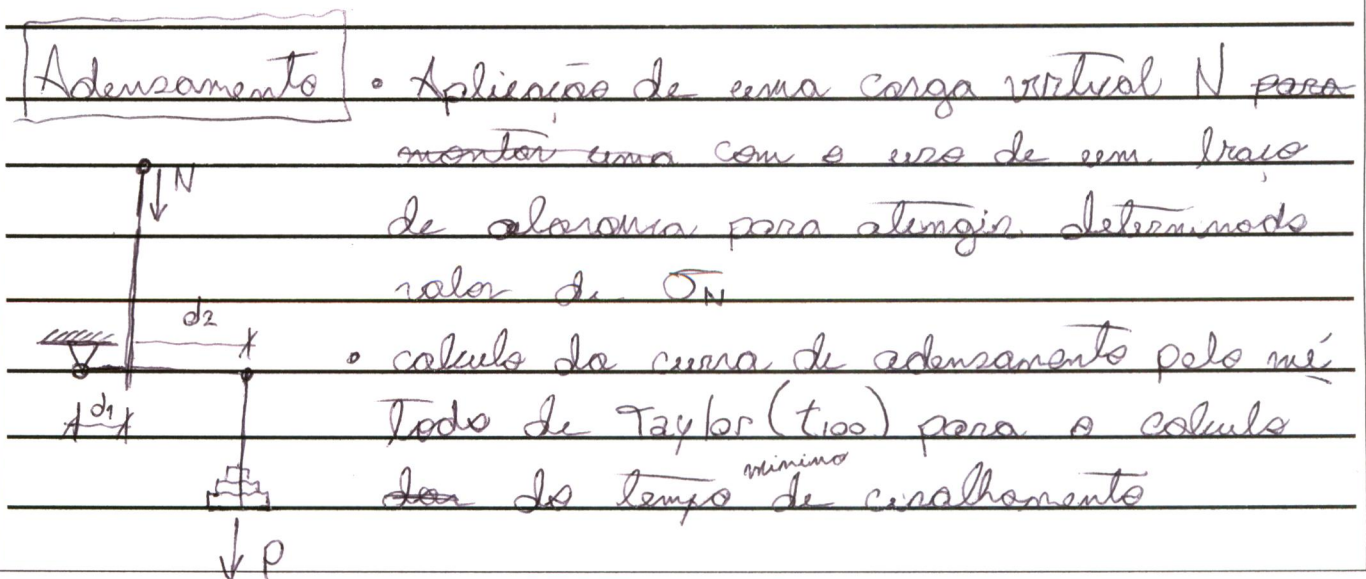 Adensamento • Aplicação de uma carga vertical N para
montar uma com o uso de um braço
de alavanca para atingir determinado
valor de σN
• calculo da curva de adensamento pelo mé
todo de Taylor (t100) para o calculo
do tempo mínimo de cisalhamento
N
d2
d1
P